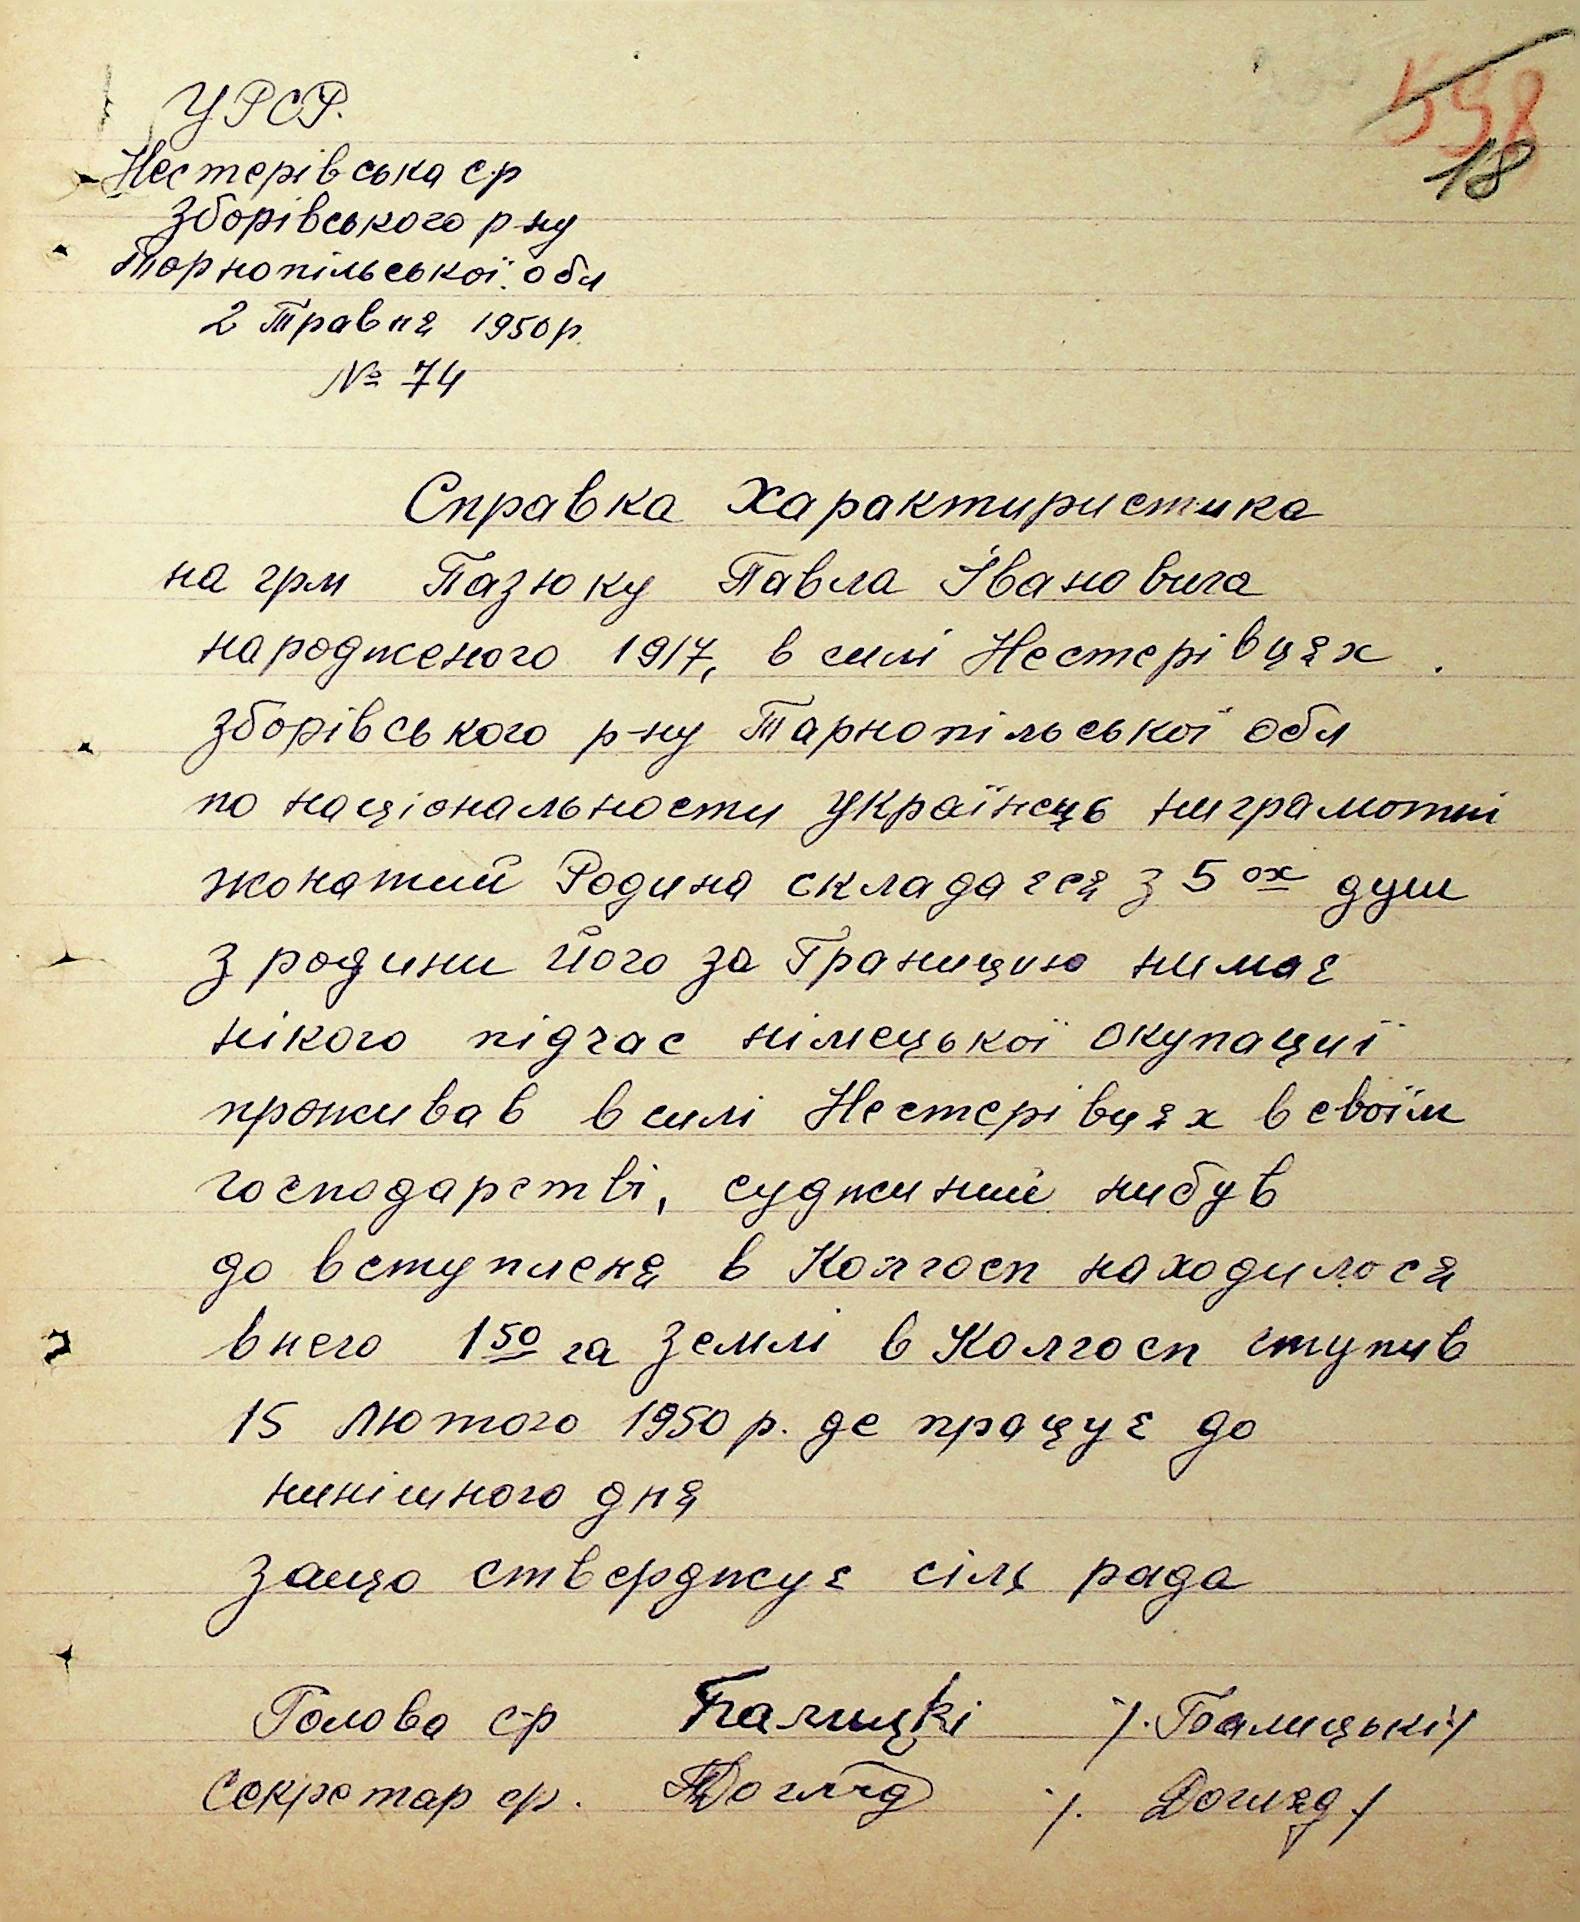 598
18
УРСР.
Нестерівська с-р
Зборівського р-ну
Тарнопільської обл
2 Травня 1950 р.
№ 74
Справка Характиристика
на грм Пазюку Павла Івановича
народженого 1917, в силі Нестерівцях.
Зборівського р-ну Тарнопільської обл
по національности Українець ниграмотні
жонатий Родина складаєся з 5 ох душ
з родини його за Границию нимає
нікого підчас німецької окупациї
проживав в силі Нестерівцях в своїм
господарстві, суджиний нибув
до вступленя в Колгосп находилося
в него 1 50 га Землі в Колгосп ступив
15 Лютого 1950 р. де працує до
нинішного дня
защо стверджує сіль рада
Голова с-р Балицкі /. Балицькі /
Секретар с-р. Догляд /. Догляд ./